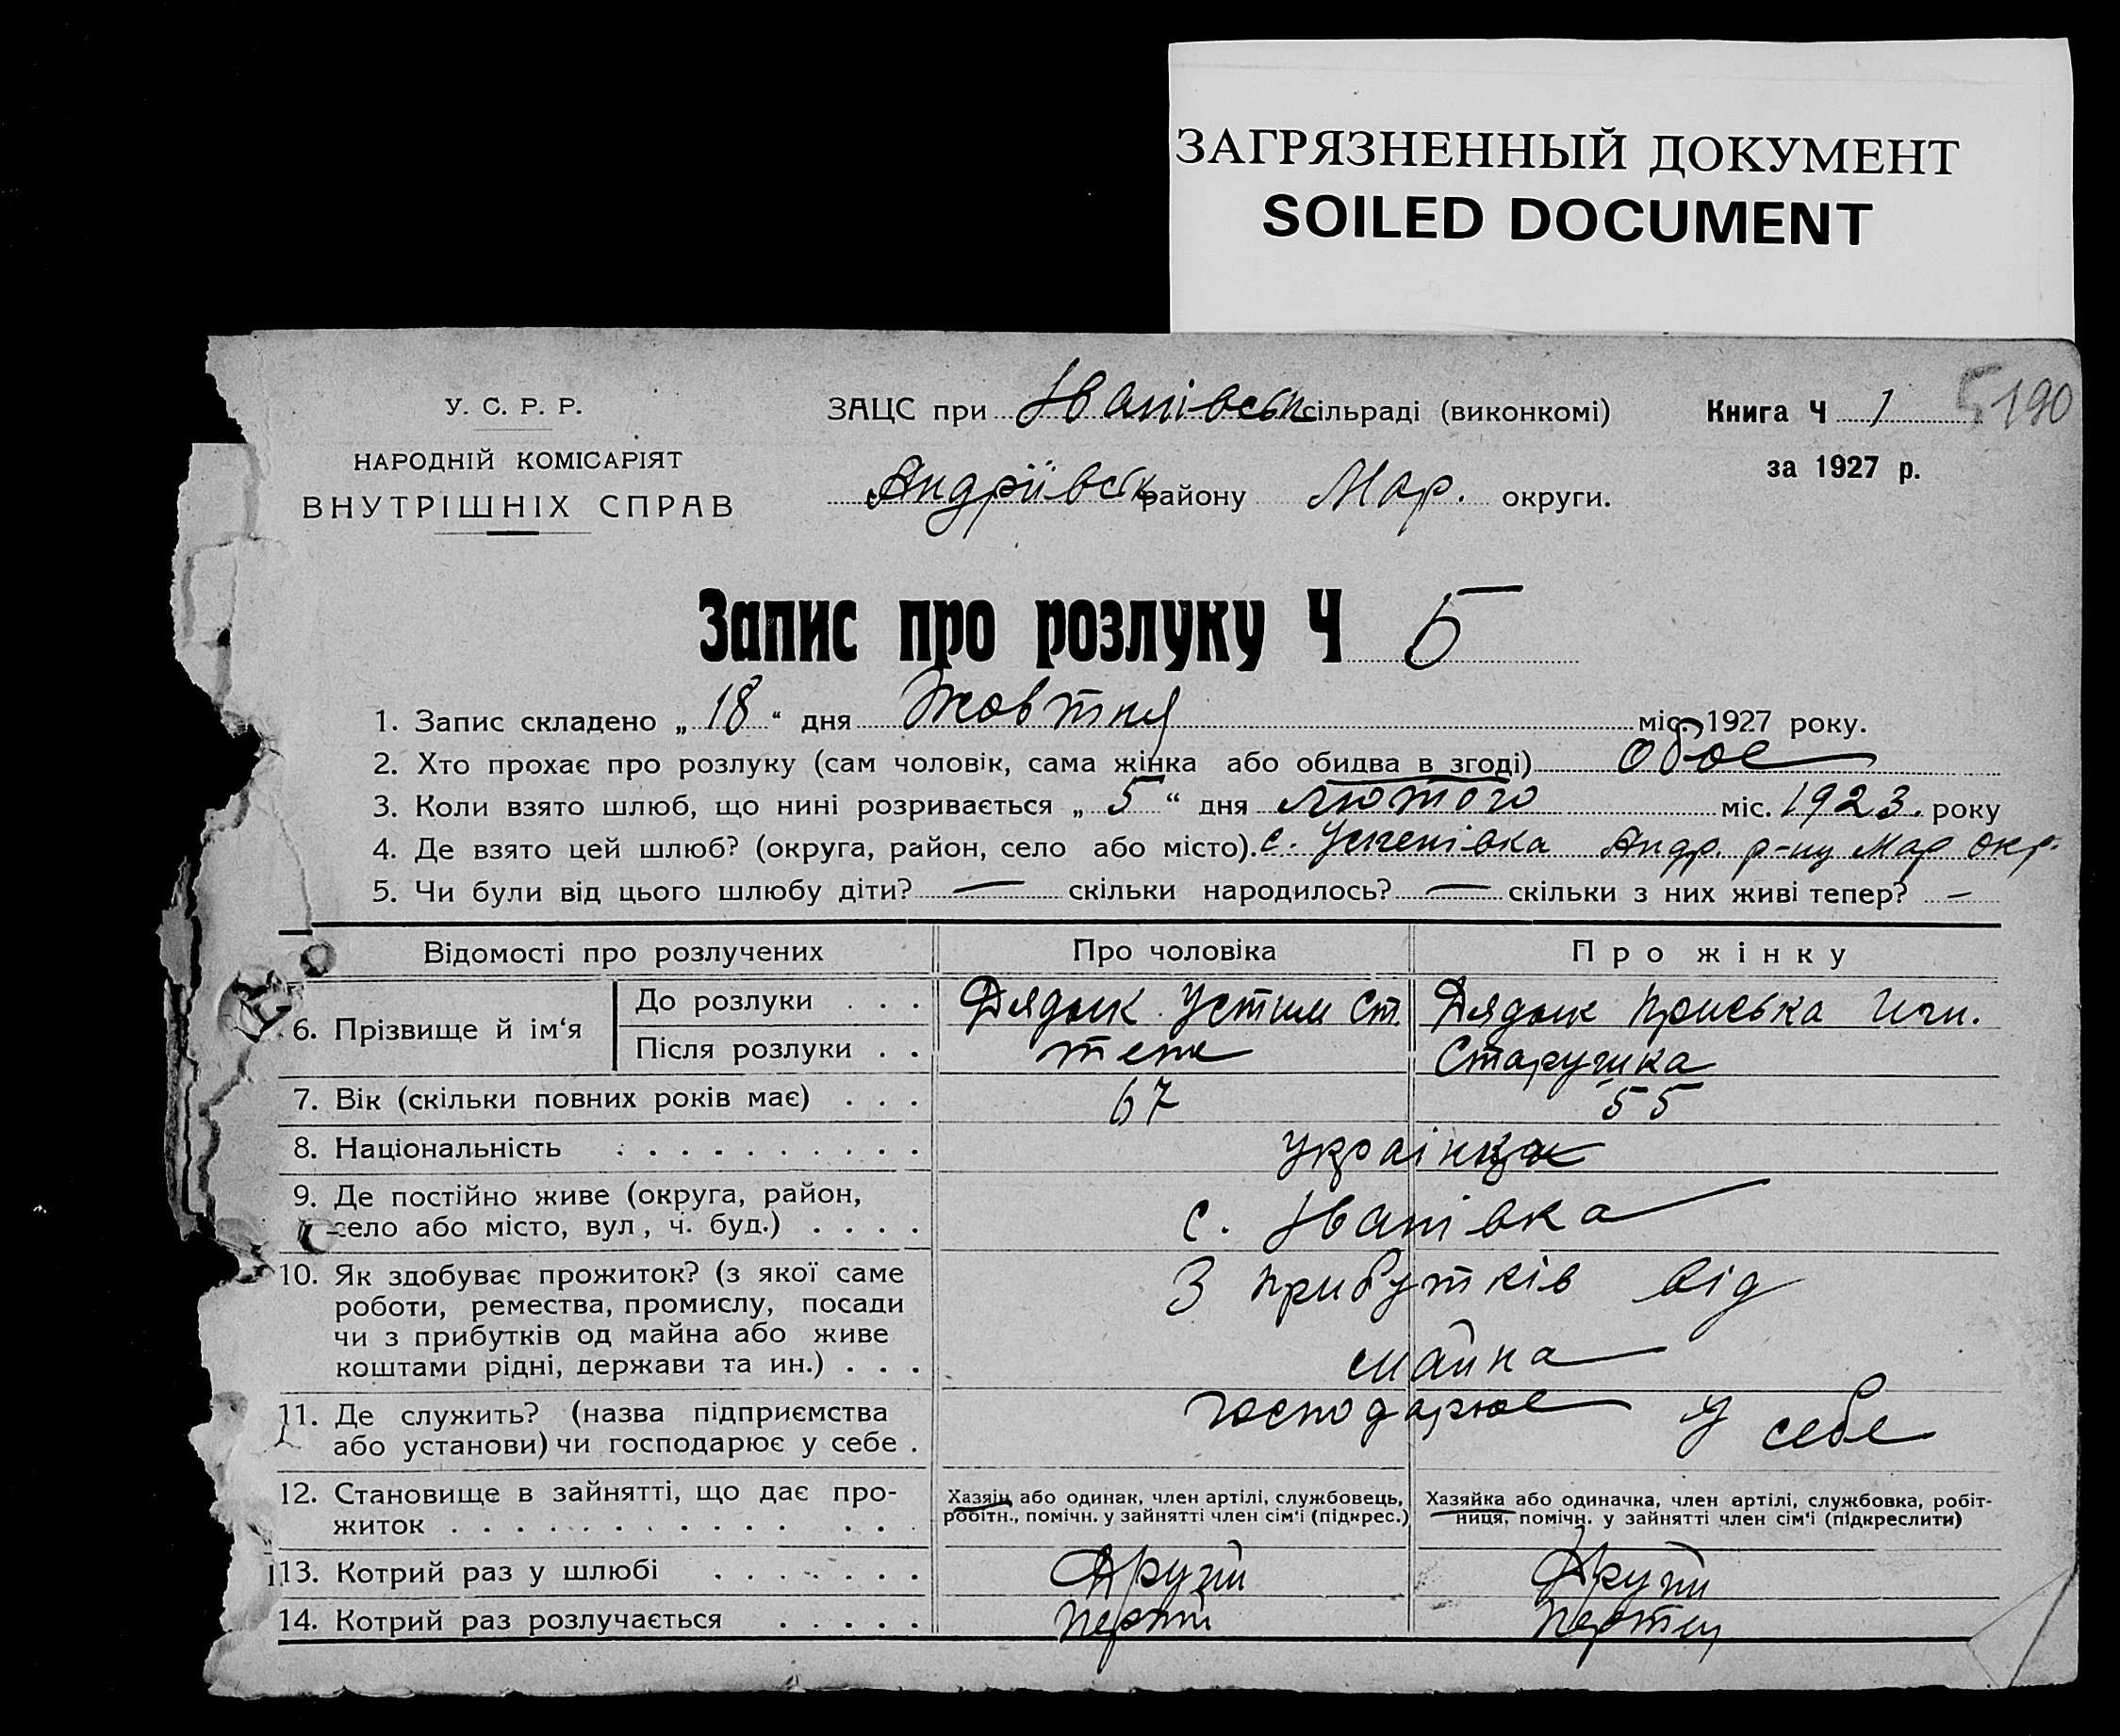 ЗАГРЯЗНЕННЫЙ ДОКУМЕНТ
SOILED DOCUMENT
У. С. Р. Р.
НАРОДНІЙ КОМІСАРІЯТ
ВНУТРІШНІХ СПРАВ
ЗАЦС при Іванівськ сільраді (виконкомі)
Андріївськ району Мар. округи.
Книга Ч 1
5 190
за 1927 р.
Запис про розлуку Ч 5
1. Запис складено „ 18 “ дня Жовтня міс. 1927 року.
2. Хто прохає про розлуку (сам чоловік, сама жінка або обидва в згоді) обоє
3. Коли взято шлюб, що нині розривається „ 5 “ дня лютого міс. 1923. року
4. Де взято цей шлюб? (округа, район, село або місто). с. Успенівка Андр. р-ну Мар окр.
5. Чи були від цього шлюбу діти? — скільки народилось? — скільки з них живі тепер? —
Відомості про розлучених Про чоловіка Про жінку
6. Прізвище й ім‘я
До розлуки . . . Дядык Устим Ст. Дядык Приська Игн.
Після розлуки . . теж Старушка
7. Вік (скільки повних років має) . . . 67 55
8. Національність . . . . . . . . . українці
9. Де постійно живе (округа, район,
село або місто, вул, ч. буд.) . . . . с. Іванівка
10. Як здобуває прожиток? (з якої саме
роботи, ремества, промислу, посади
чи з прибутків од майна або живе
коштами рідні, держави та ин.) . . .
З прибутків від
майна
11. Де служить? (назва підприємства
або установи) чи господарює у себе .
господарює у себе
12. Становище в зайнятті, що дає про-
житок . . . . . . . . . . . . .
Хазяін або одинак, член артілі, службовець,
робітн., помічн. у зайнятті член сім‘і (підкрес.)
Хазяйка або одиначка, член артілі, службовка, робіт-
ниця, помічн. у зайнятті член сім‘і (підкреслити)
13. Котрий раз у шлюбі . . . . . . . Другий Другий
14. Котрий раз розлучається . . . . . Перший